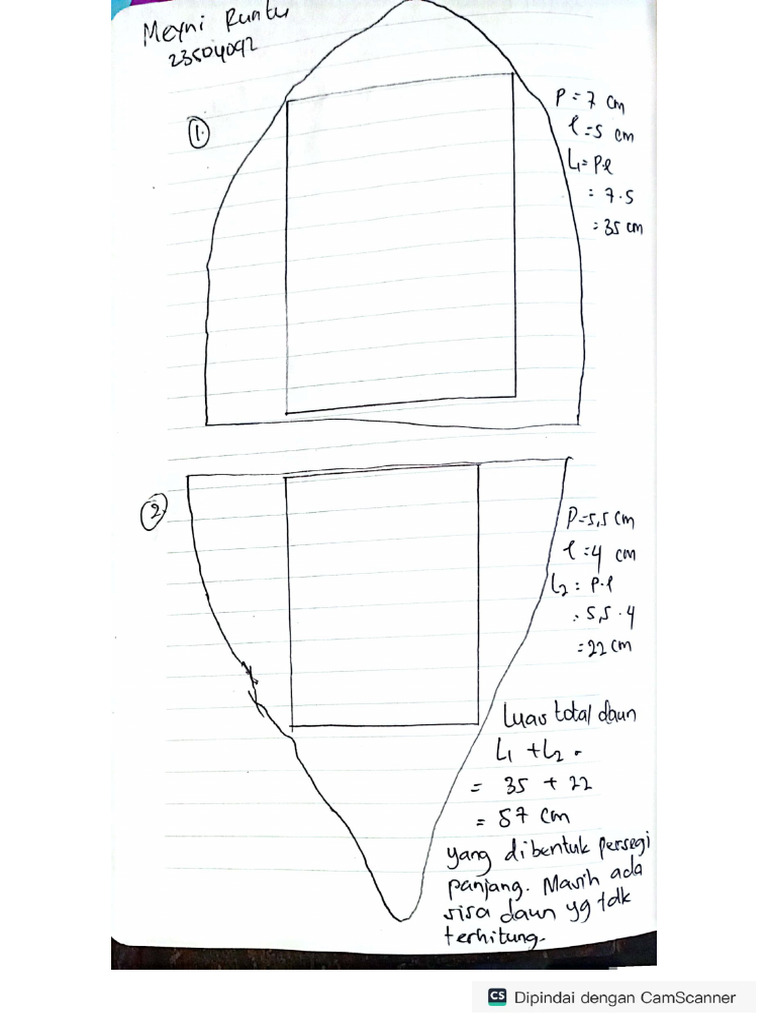 Meyni Runtu
23504092
1.
P = 7 cm
l = 5 cm
L1 = P.l
= 7.5
= 35 cm
2
P = 5,5 cm
l = 4 cm
L2 = P.l
= 5,5 . 4
= 22 cm
Luas total daun
L1 + L2 =
= 35 + 22
= 57 cm
yang dibentuk persegi
panjang. Masih ada
sisa daun yg tdk
terhitung.
CS Dipindai dengan CamScanner